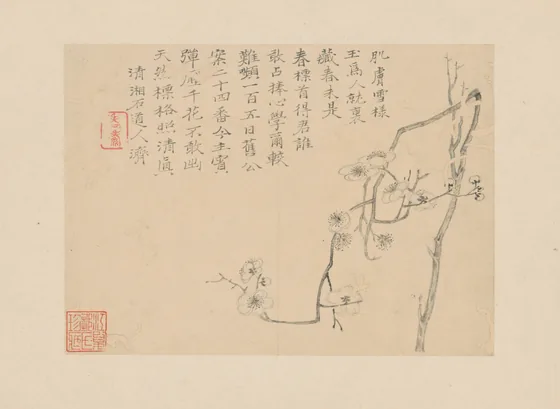 肌膚雪樣
玉為人就裏
藏春未是
春標首得君誰
敢占捧心學爾較
難顰一百五日舊公
案二十四番今主賓
彈壓千花不敢出
天然標格照清真
清湘石道人濟